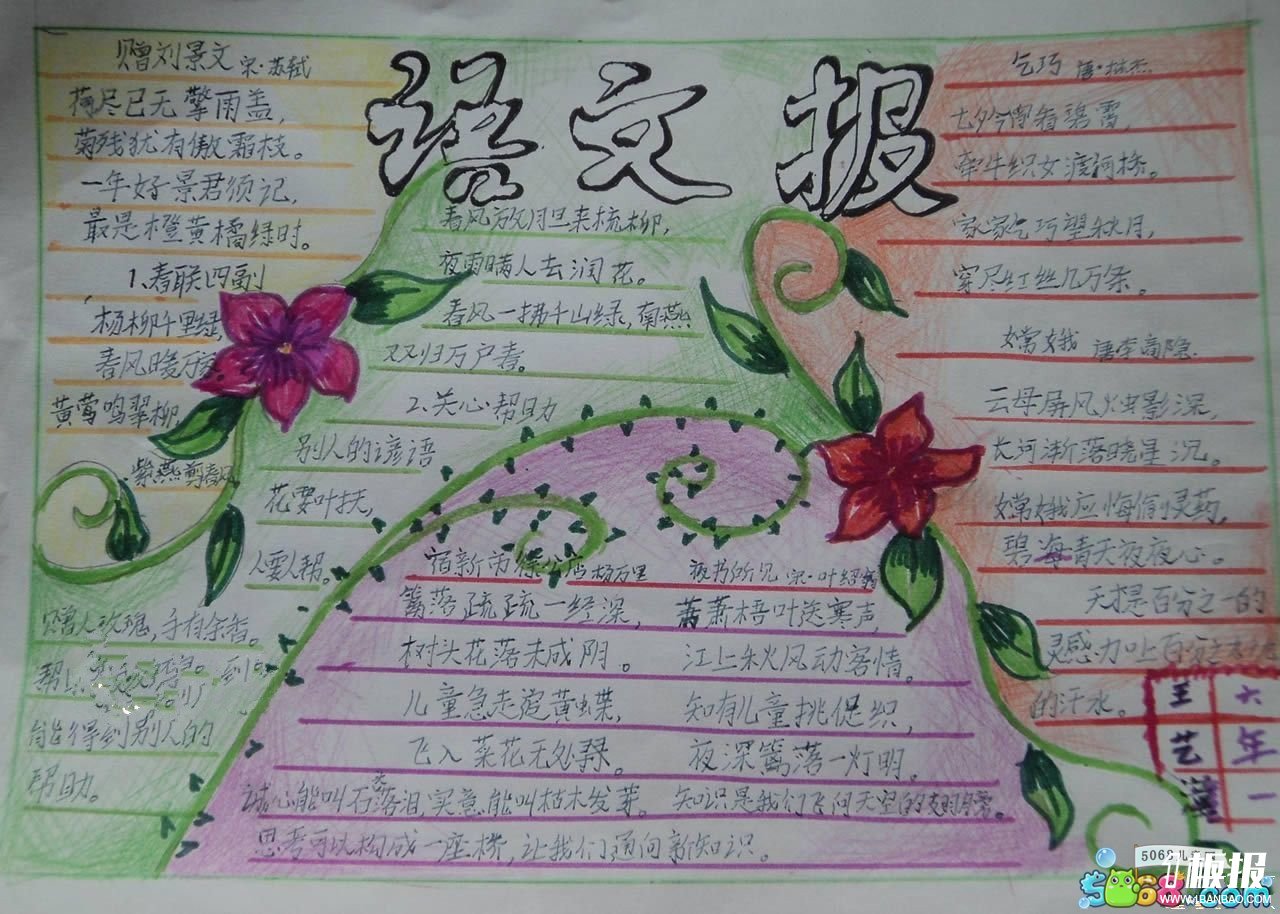 语文报
赠刘景文 宋·苏轼
荷尽已无擎雨盖，
菊残犹有傲霜枝。
一年好景君须记，
最是橙黄橘绿时。
1、春联四副
杨柳千里绿，
春风暖万家
黄莺鸣翠柳，
紫燕剪春风
春风放胆来梳柳，
夜雨瞒人去润花。
春风一拂千山绿，南燕
双归万户春。
2、关心帮助
别人的谚语
花要叶扶，
人要人帮。
赠人玫瑰，手有余香。
能得到别人的
帮助。
乞巧 唐·林杰
七夕今宵看碧霄，
牵牛织女渡河桥。
家家乞巧望秋月，
穿尽红丝几万条。
嫦娥 唐李商隐
云母屏风烛影深，
长河渐落晓星沉。
嫦娥应悔偷灵药，
碧海青天夜夜心。
天才是百分之一的
灵感加上百分之
的汗水。
宿新市徐公店 杨万里
篱落疏疏一径深，
树头花落未成阴。
儿童急走追黄蝶，
飞入菜花无处寻。
夜书所见 宋·叶绍翁
萧萧梧叶送寒声，
江上秋风动客情。
知有儿童挑促织，
夜深篱落一灯明。
诚心能叫石头落泪，实意能叫枯木发芽。知识是我们飞向天空的
思考可以构成一座桥，让我们通向新知识。
六年一
王艺
5068儿童网
5068.com
板报
WWW.1BANBAO.COM